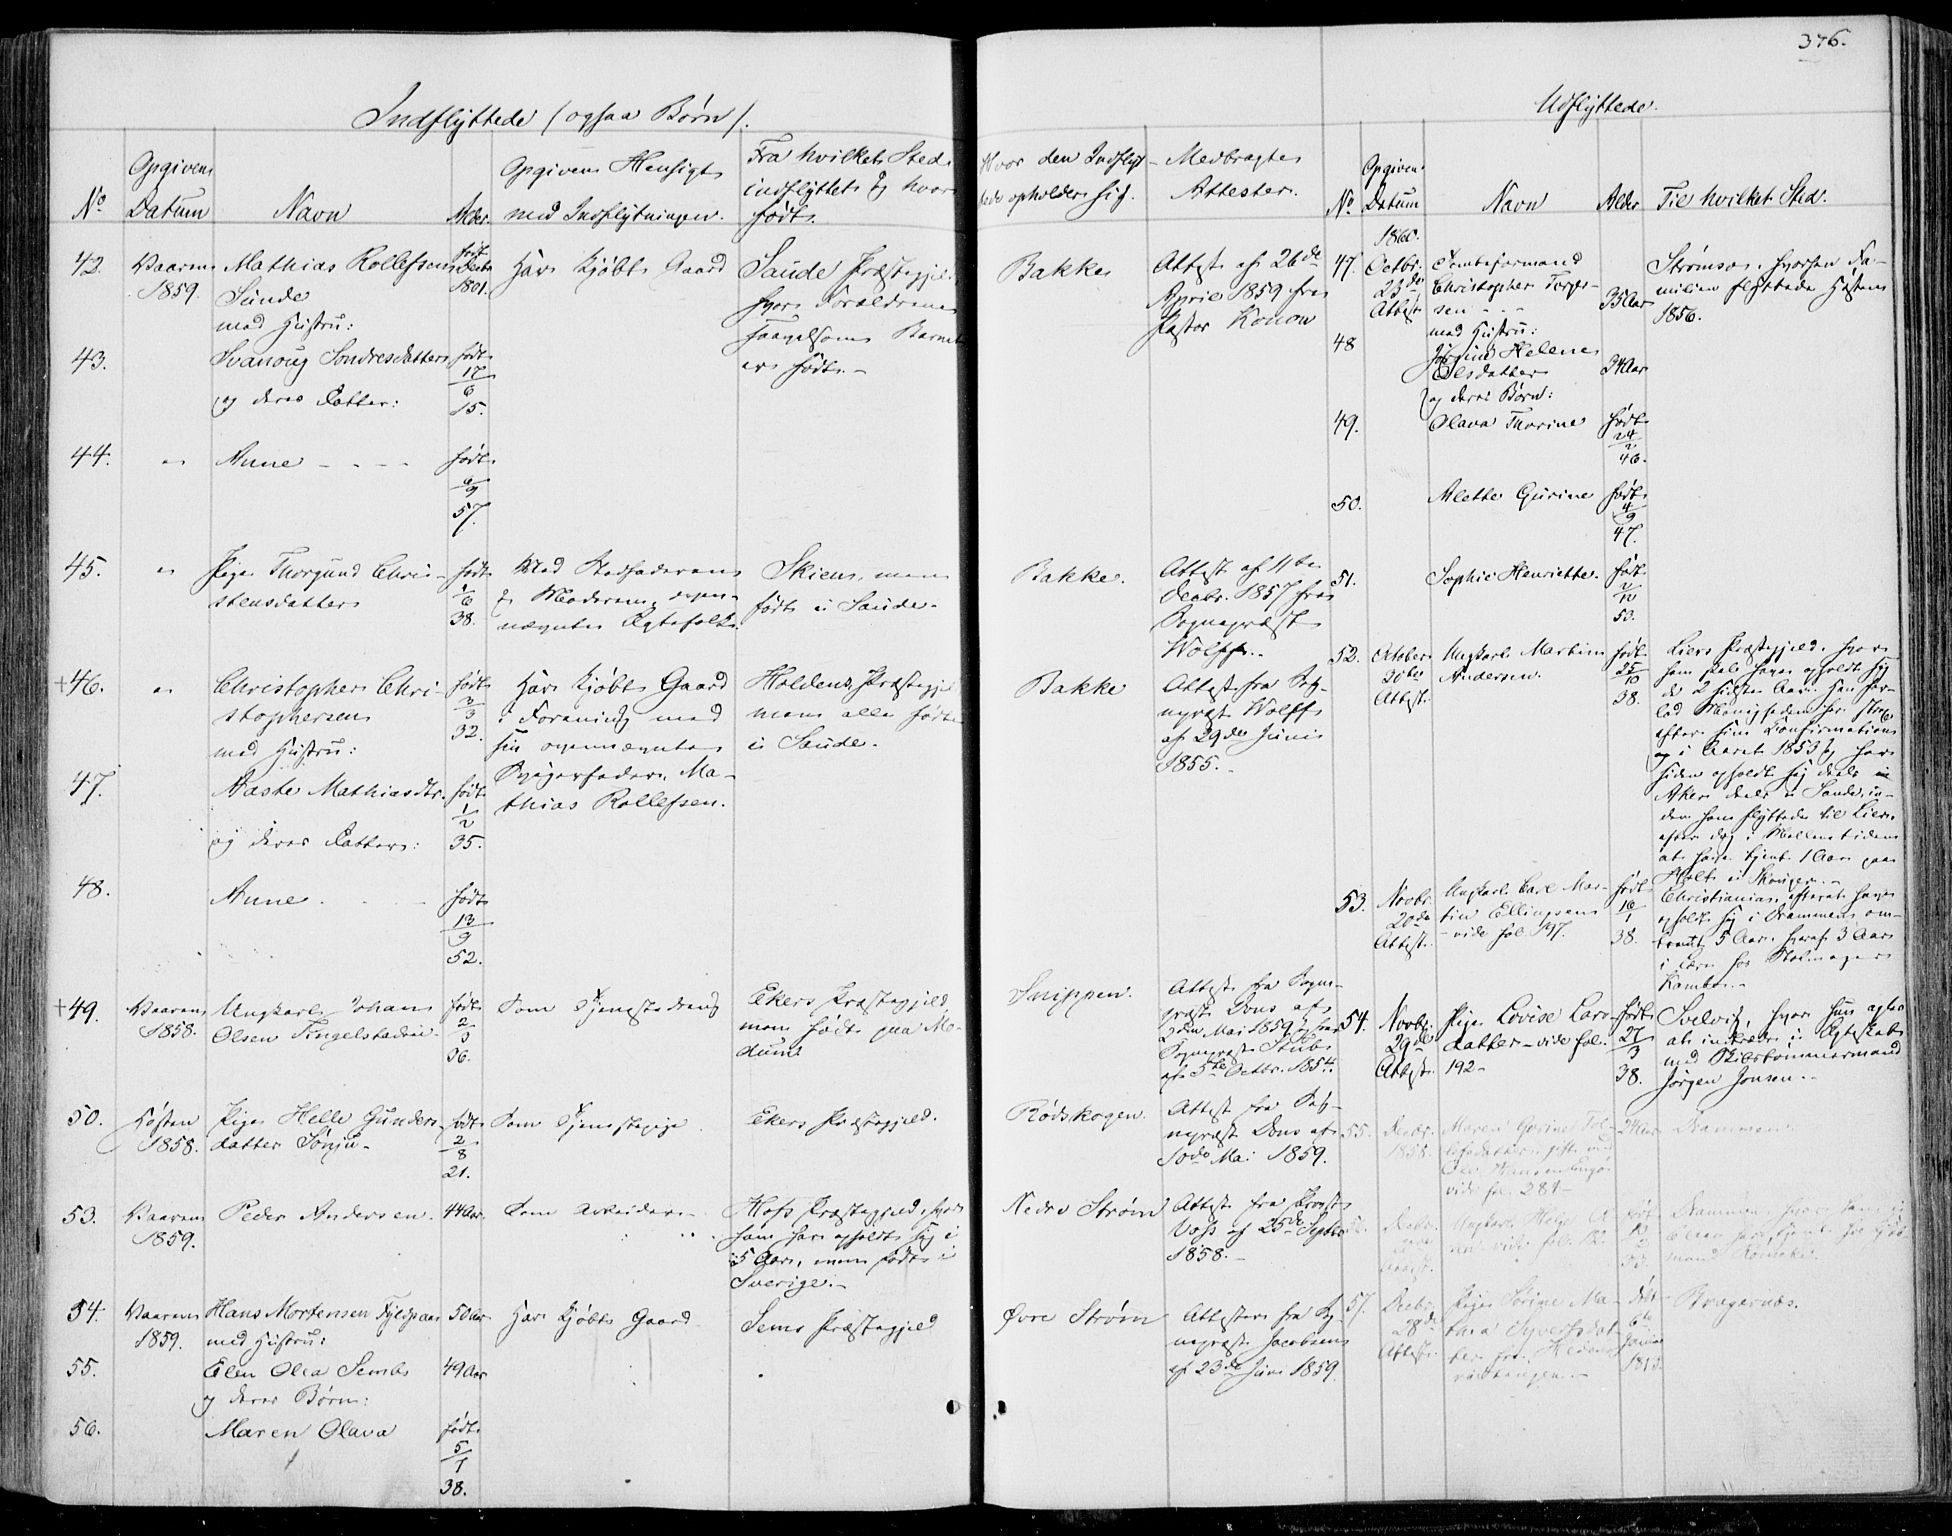 376.
Indflyttede (ogsaa Børn).
No
Opgiven Datum
Navn
Alder.
Opgiven Hensigt med Indflytningen.
Fra hvilket Sted indflyttet og hvor født.
Hvor den Indflyttede opholder sig.
Medbragte Attester.
42.
Vaaren 1859.
Mathias Rollefsen Sunde
født Decbr 1801.
Har kjøbt Gaard
Saude Præstegjeld, hvor Forældrene saavelsom Barnet er født.-
Bakke
Attest af 26de April 1859 fra Pastor Konow
med Hustru:
43.
Svanoug Sondresdatter
født 17/6 15.
og deres Datter:
44.
"
Anne - - - -
født 57.
45.
"
Pige Thorgund Christensdatter
født 1/6 38.
Med Stedfaderen & Moderen, ovennævnte Ægtefolk.
Skien, men født i Saude.
Bakke.
Attest af 11te Decbr. 1857 fra Sognepræst Wolff.-
+46.
"
Christopher Christophersen
født 3/3 32.
Har kjøbt Gaard i Forening med sin ovennævnte Svigerfader, Mathias Rollefsen.
Holdens Præstegjeld men alle født i Saude.
Bakke
Attest fra Sognepræst Wolff af 29de Juni 1855.-
med Hustru:
47.
Aaste Mathiasdtr.
født 1/2 35.
og deres Datter:
48.
Anne.
født 13/9 52.
+49.
Vaaren 1858.
Ungkarl Johan Olsen Fingelstadeie
født 2/3 36.
Som Tjenestedreng
Ekers Præstegjeld, men født paa Modum
Snippen.
Attest fra Sognepræst Dons af 2den Mai 1859 og fra Sognepræst Stub af 5te Octbr. 1854.
50.
Høsten 1858.
Pige Helle Gundersdatter Sønju-
født 2/8 21.
Som Tjenestepige
Ekers Præstegjeld.
Rødskogen.
Attest fra Sognepræst Dons af 10de Mai 1859.
53.
Vaaren 1859.
Peder Andersen.
44 Aar.
Som Arbeider-
Hofs Præstegjeld, hvor han har opholdt sig i 5 Aar, men født i Sverige.-
Nedre Strøm
Attest fra Provst Voss af 25de Septbr 1858.-
54.
Vaaren 1859.
Hans Mortensen Fyldpaa
50 Aar
Har kjøbt Gaard
Sems Præstegjeld
Øvre Strøm
Attester fra Sognepræst Jacobsen af 23de Juni 1859.
med Hustru:
55.
Elen Olea Semb
49 Aar
og deres Børn:
56.
Maren Olava
født 5/1 38.
Udflyttede.
No
Opgiven Datum
Navn
Alder
Til hvilket Sted.
1860.
47.
Octbr. 23de Attest
Tomteformand Christopher Torgersen - - -
35 Aar
Strømsø, hvorhen Familien flyttede Høsten 1856.
med Hustru:
48
Jørgine Helene Olsdatter
34 Aar
og deres Børn:
49.
Olava Thorine
født 24/2 46.
50.
Alette Gurine
født 4/9 47.
51.
Sophie Henriette.
født 2/12 53.
52.
October 30te Attest.
Ungkarl Martin Andersen.
født 25/10 38.
Liers Præstegjeld, hvor han skal have opholdt sig de 2 sidste Aar. Han forlod Menigheden her strax efter sin Confirmation og i Aaret 1853 og har siden opholdt sig deels i Aker deels i Sande, inden han flyttede til Lier efter dog i Mellemtiden at have tjent 1 Aar paa Holt i Skouger.-
53.
Novbr. 20de Attest.
Ungkarl Carl Martin Ellingsen - vide fol. 197.
født 16/1 38.
Christiania, efterat have opholdt sig i Drammen omtrent 5 Aar, hvoraf 3 Aar i Lære hos Stolmager Kambo.-
54.
Novbr. 29de Attest.
Pige Lovise Larsdatter - vide fol. 192-
født 27/3 38.
Svelvig, hvor hun agter at indtræde i Ægteskab med Skibstømmermand Jørgen Jonsen.-
55.
Decbr. 1858.
Maren Gurine Tollefsdatter, gift med Ole Hansen vide fol. 284-
24 Aar
Drammen.
Decbr.
Ungkarl
født
Drammen, hvor han i
57.
Decbr. 28de Attest.
Pige Sorine Mathea Syvertsdatter fra
født 6te Januar
Bragernæs.